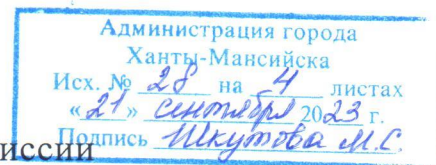 Администрация города
Ханты-Мансийска
Исх. № 28 на 4 листах
«21» сентября 2023 г.
Подпись Шкутова М.С.
иссии